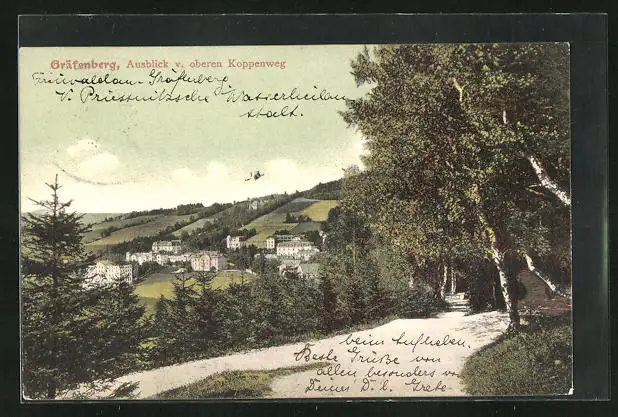 Gräfenberg, Ausblick v. oberen Koppenweg
Freiwaldau Gräfenberg
V. Priessnitzsche Wasserheilan
stalt.
beim Aufheben.
Beste Grüße von
allen besonders v.
Deiner D. l. Grete